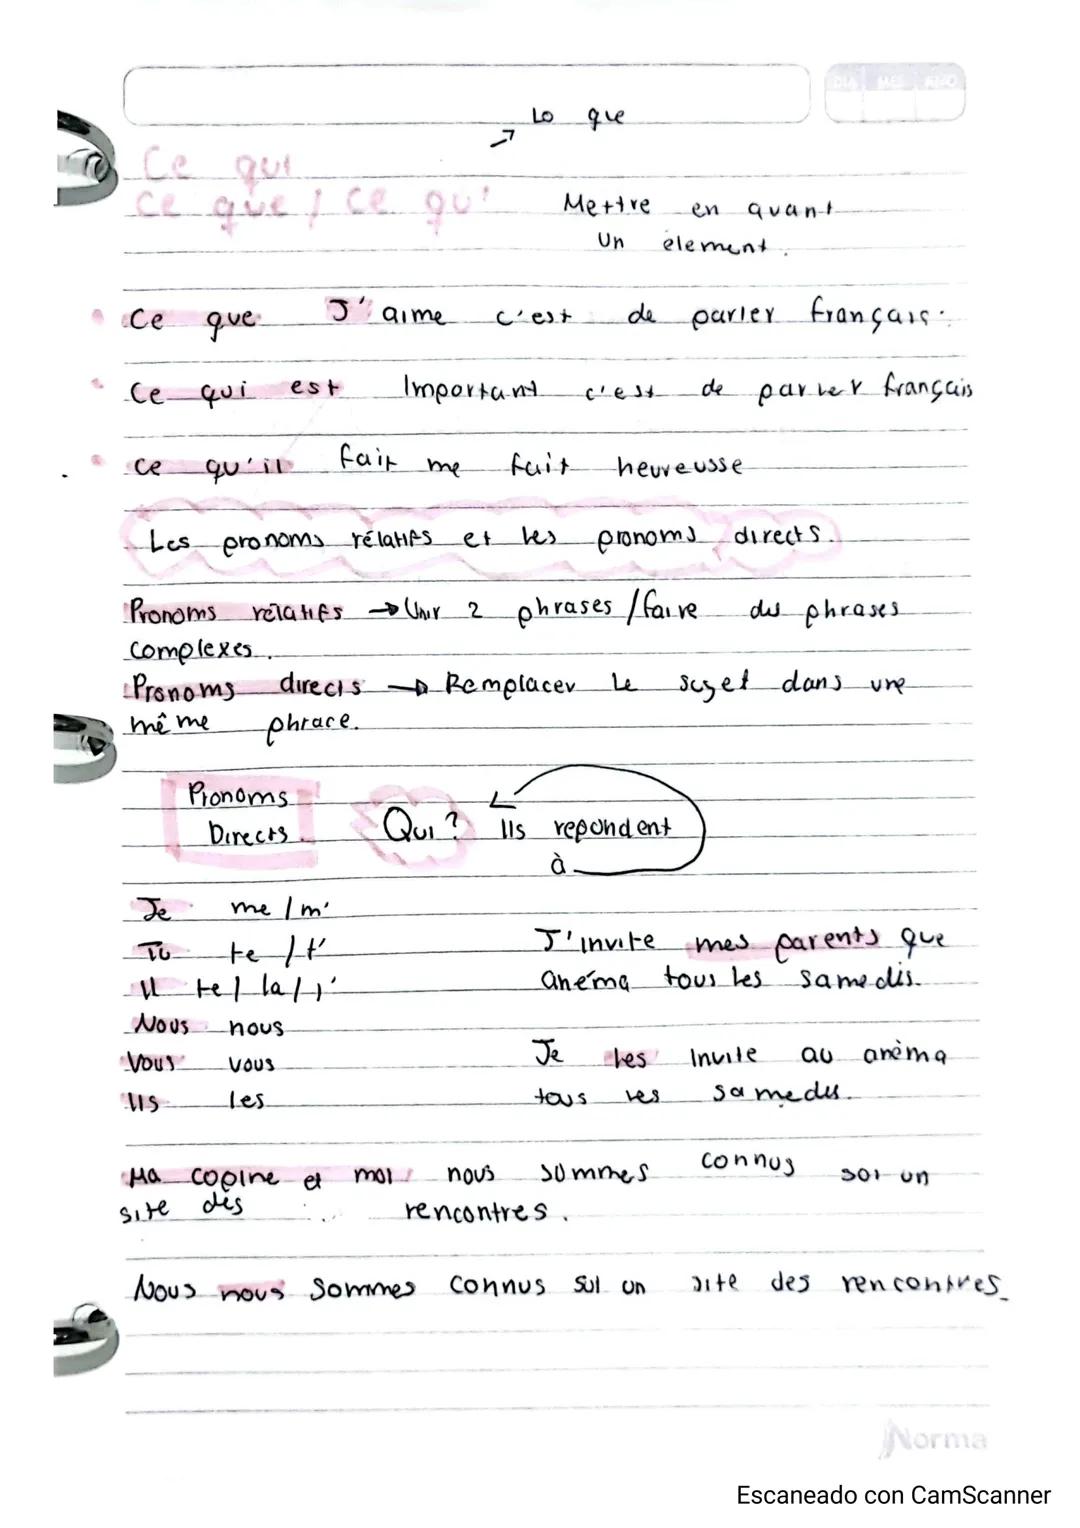 DIA MES AÑO
Lo que
Ce qui
Ce que / ce qu'
Mettre en avant
un élement.
Ce que J'aime c'est de parler français.
Ce qui est Important c'est de parler français
Ce qu'il fait me fait heureusse
Les pronoms rélatifs et les pronoms directs.
Pronoms rélatifs → Unir 2 phrases / faire des phrases
complexes.
Pronoms directs → Remplacer le sujet dans une
même phrace.
Pronoms
Directs
Qui? Ils repondent
à
Je me / m'
Tu te / t'
Il le / la / l'
Nous nous
Vous vous
Ils les
J'invite mes parents que
cinéma tous les samedis.
Je les Invite au cinéma
tous les samedis.
Ma copine et moi nous sommes connus sur un
site des rencontres.
Nous nous sommes connus sur un site des rencontres
Norma
Escaneado con CamScanner